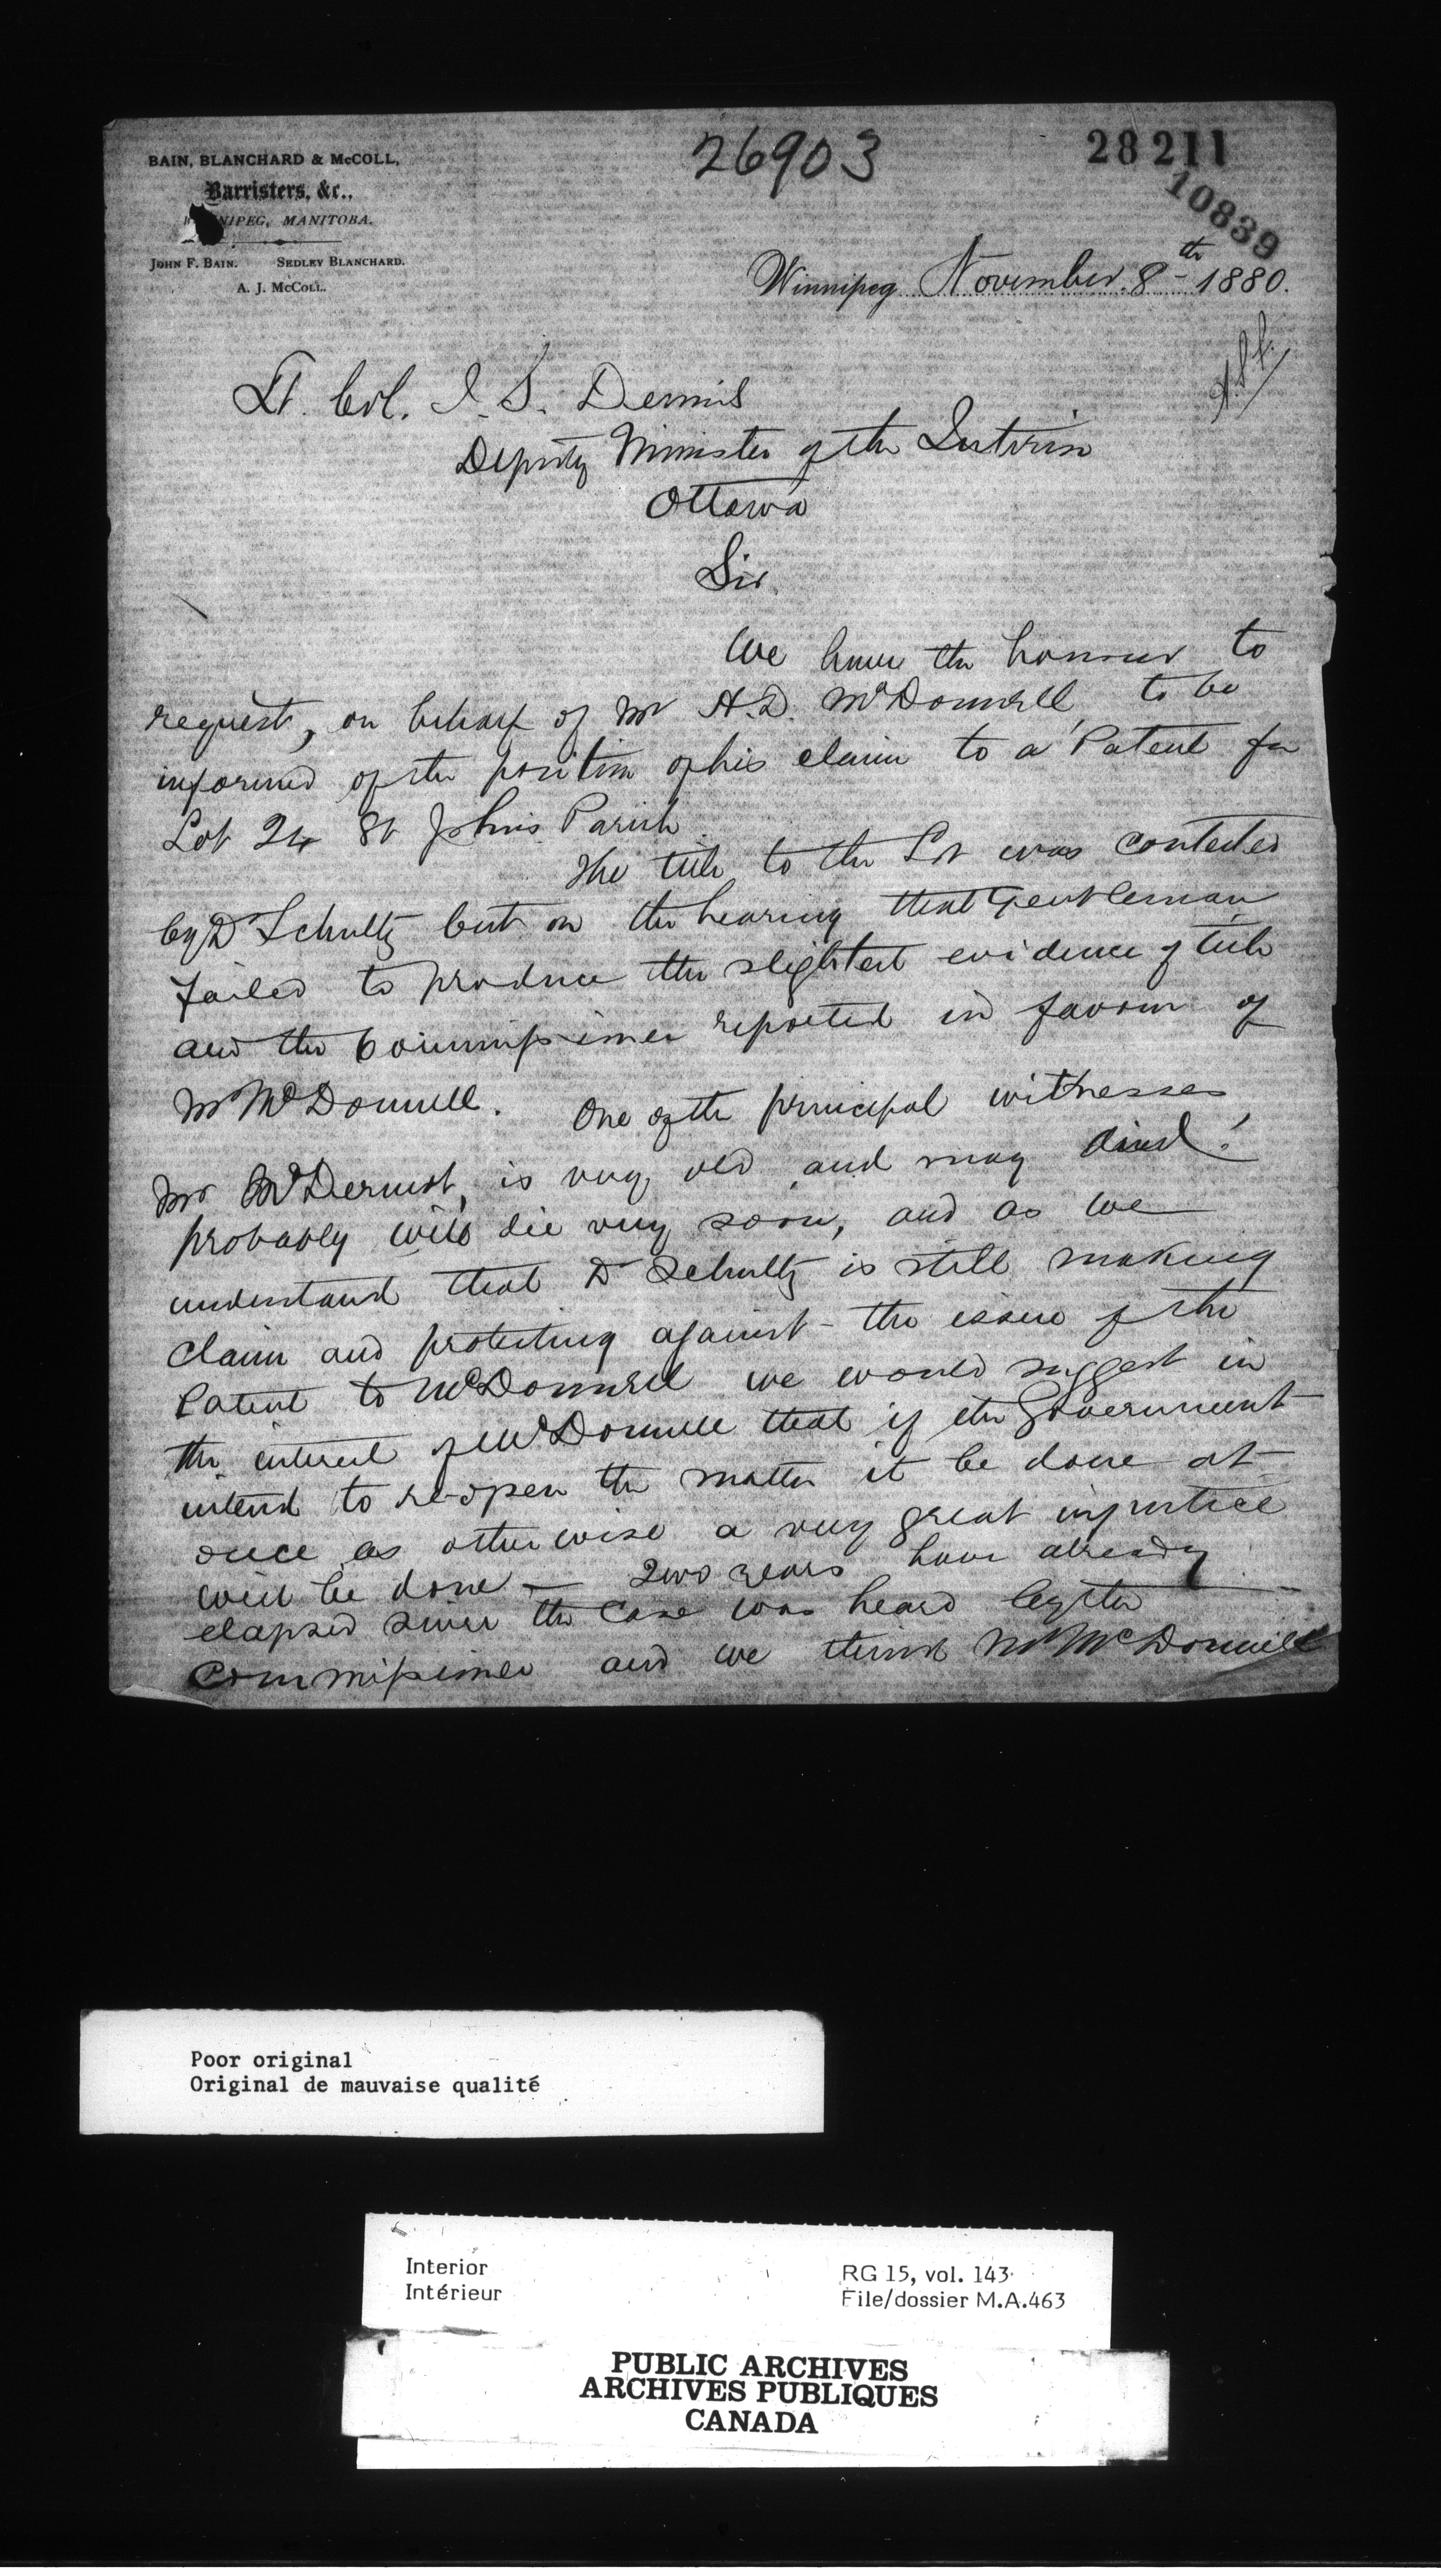 26903
28211
10839
BAIN, BLANCHARD & McCOLL,
Barristers, &c.,
WINNIPEG, MANITOBA.
JOHN F. BAIN. SEDLEY BLANCHARD.
A. J. McCOLL.
Winnipeg November 8th 1880.
Lt. Col. J. S. Dennis
Deputy Minister of the Interior
Ottawa
Sir
We have the honour to
request, on behalf of Mr A. D. McDonnell, to be
informed of the position of his claim to a Patent for
Lot 24 St Johns Parish
The title to the Lot was contested
by Dr Schultz but on the hearing that Gentleman
failed to produce the slightest evidence of title
and the Commissioner reported in favour of
Mr McDonnell. One of the principal witnesses
Mr McDermot, is very old and may
probably will die very soon, and as we
understand that Dr Schultz is still making
claim and protesting against the issue of the
Patent to McDonnell we would suggest in
the interest of McDonnell that if the Government
intend to re-open the matter it be done at
once as otherwise a very great injustice
will be done — Two years have already
elapsed since the Case was heard by the
Commissioner and we think Mr McDonnell
Poor original
Original de mauvaise qualité
Interior
Intérieur
RG 15, vol. 143
File/dossier M.A.463
PUBLIC ARCHIVES
ARCHIVES PUBLIQUES
CANADA